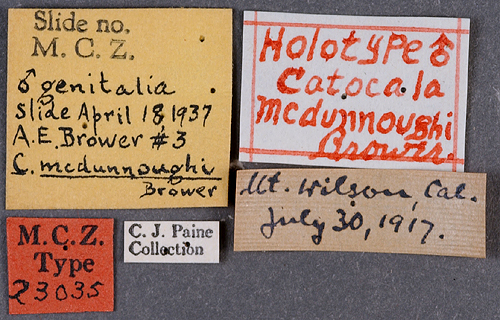 Slide no.
M. C. Z.
♂ genitalia
slide April 18 1937
A. E. Brower #3
C. mcdunnoughi
Brower
Holotype ♂
Catocala
mcdunnoughi
Brower.
Mt. Wilson, Cal.
July 30, 1917.
M.C.Z.
Type
23035
C. J. Paine
Collection